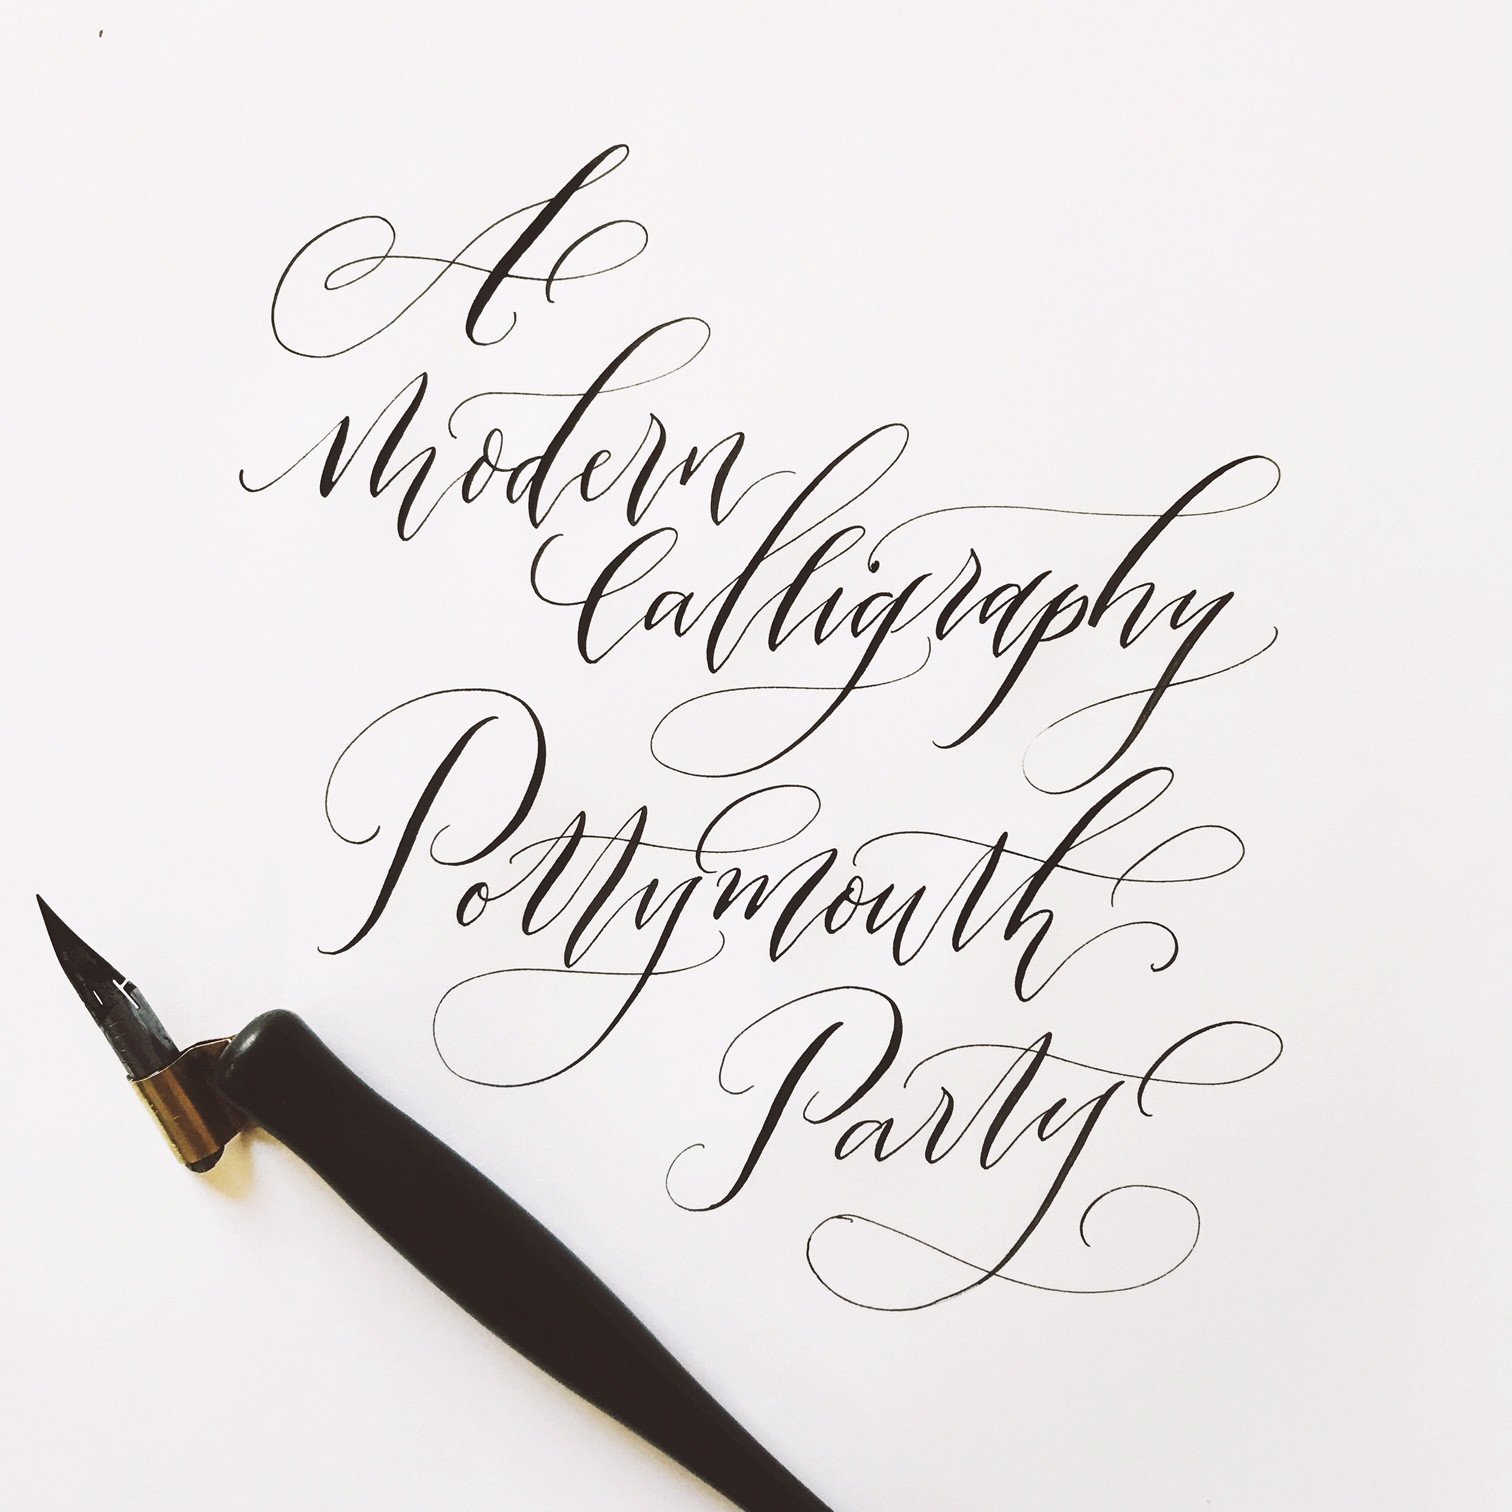 A
Modern
Calligraphy
Pottymouth
Party